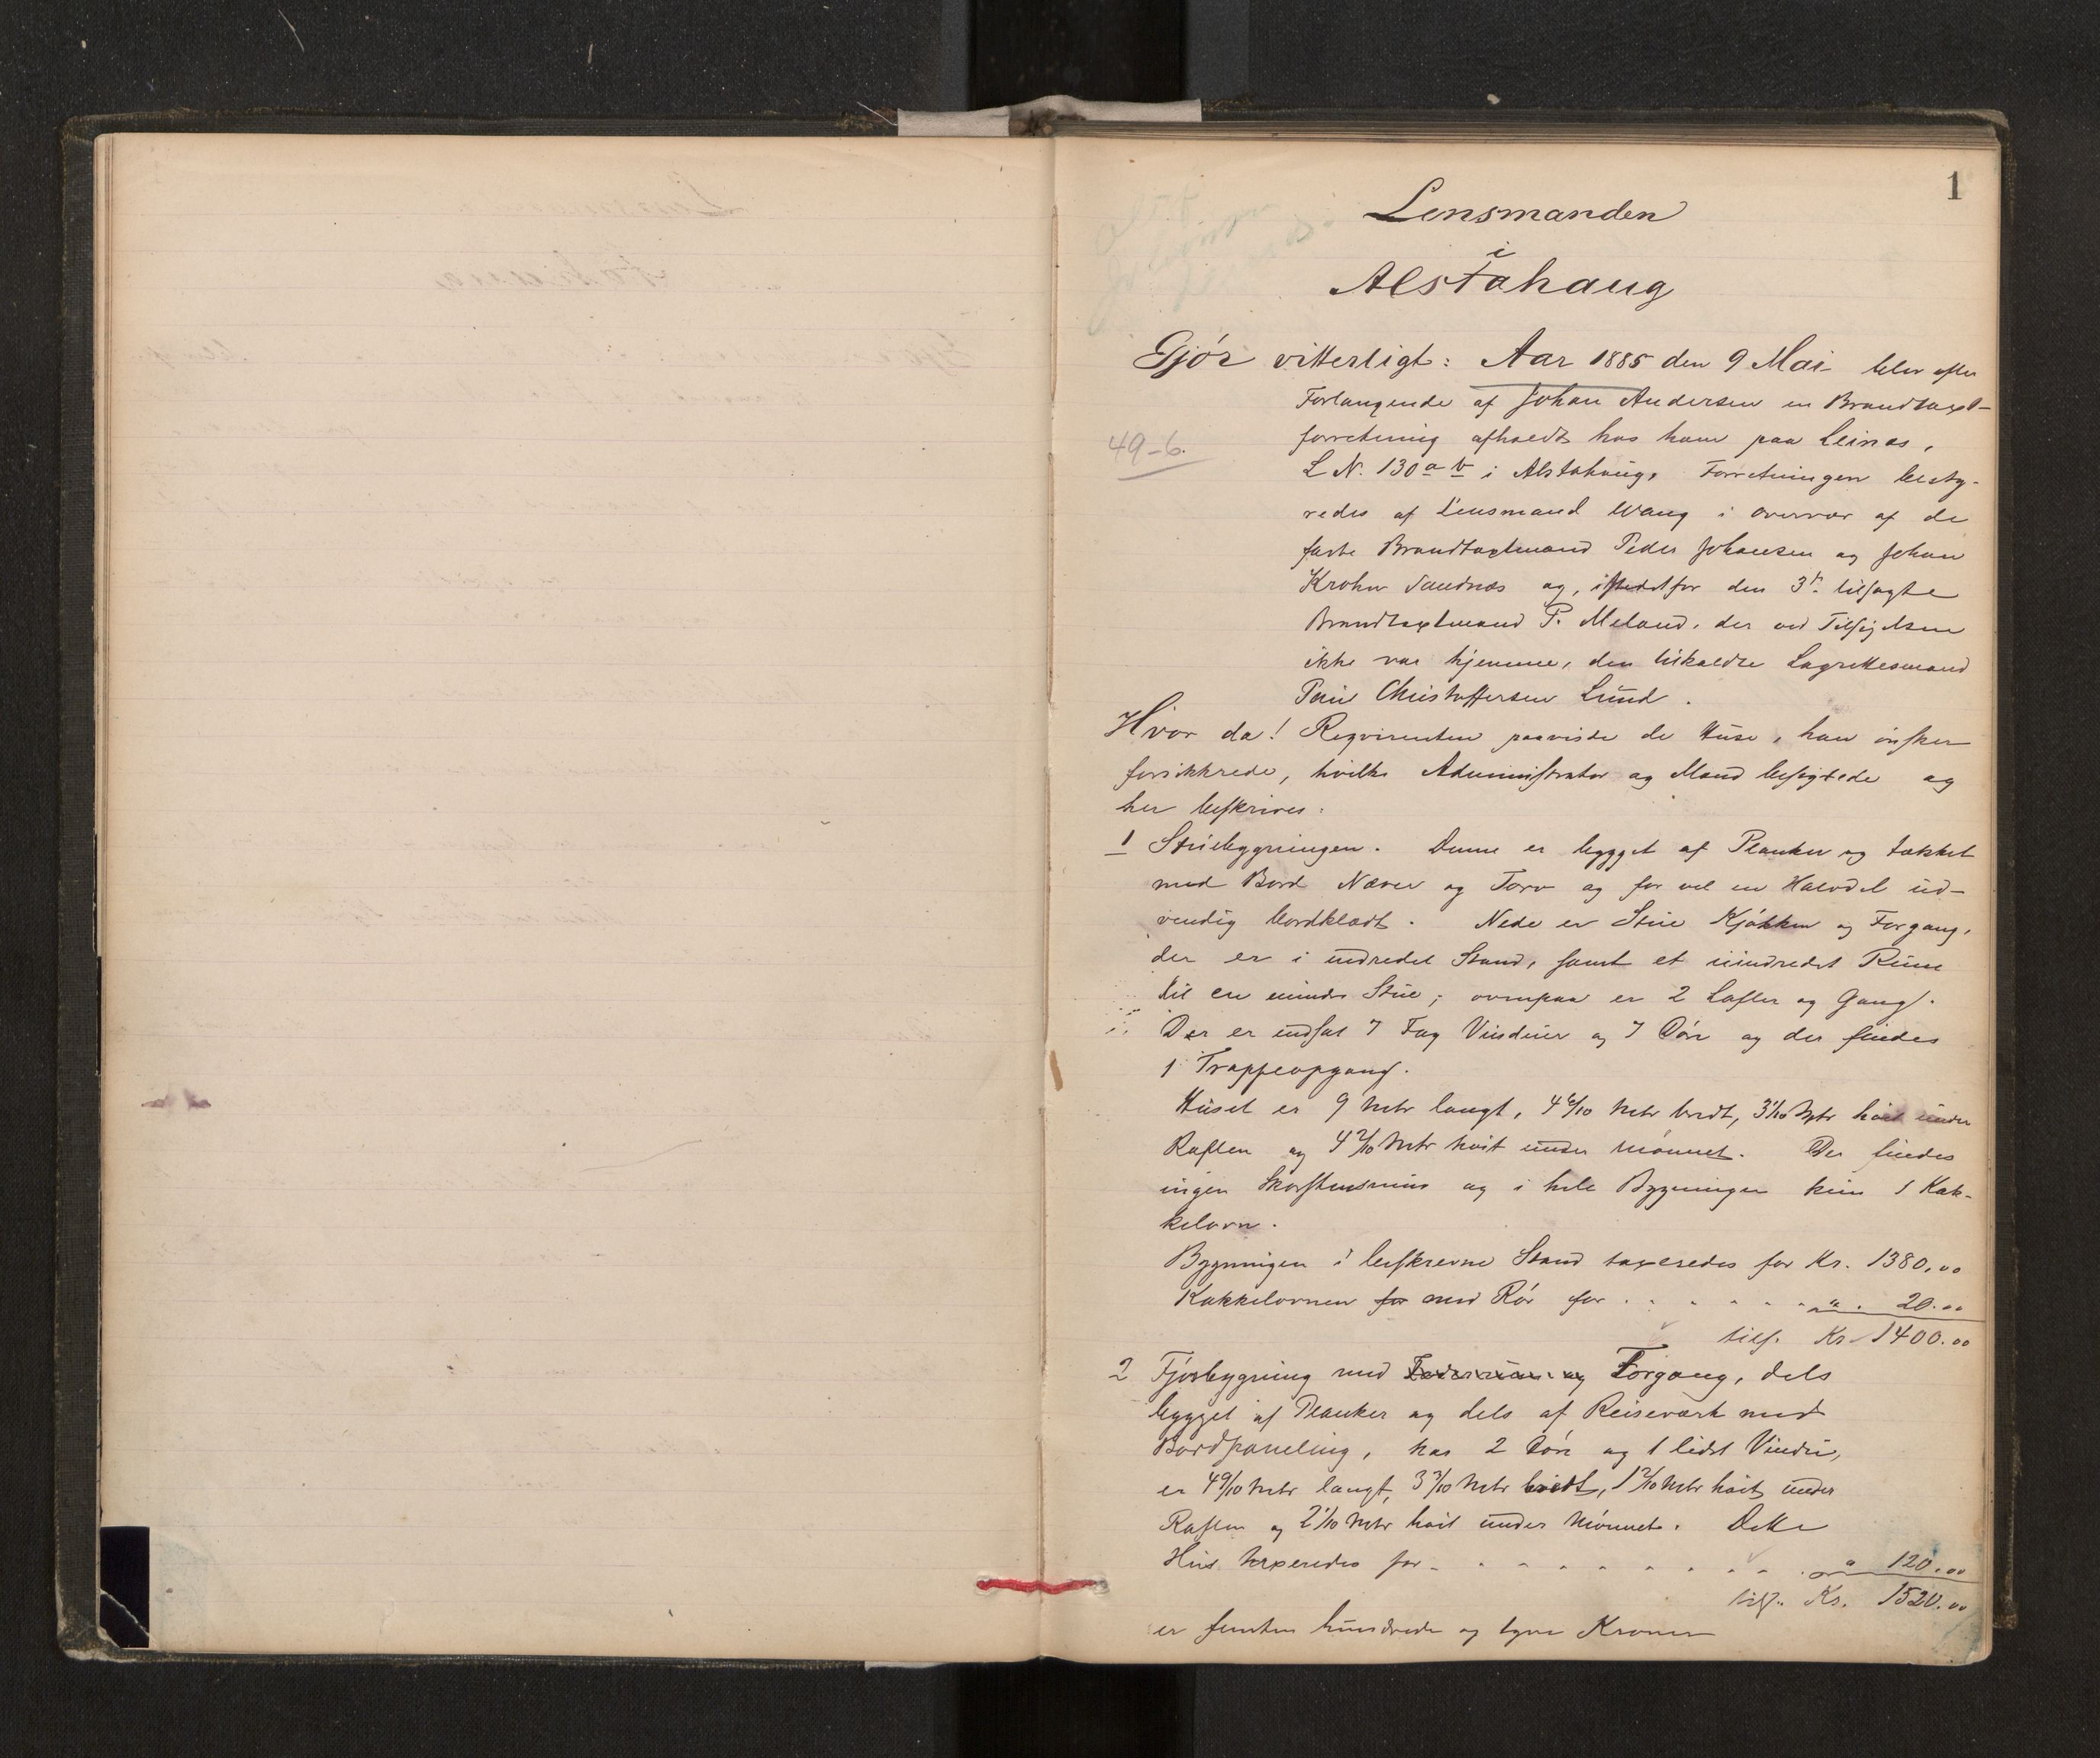 1
Lensmanden
i
Alstahaug
Gjör vitterligt: Aar 1885 den 9 Mai blev efter
Forlangende af Johan Andersen en Brandtaxt-
forretning afholdt hos ham paa Leines,
49-6.
L N. 130 a b i Alstahaug. Forretningen besty-
redes af Lensmand Wang i Overvær af de
faste Brandtaxtmænd Peder Johansen og Johan
Krohn Sandnes og, istedetfor den 3die tilsagte
Brandtaxtmand P. Meland, der ved Tilsigelsen
ikke var hjemme, den tilkaldte Lagrettesmand
Christoffersen Lund.
Hvor da! Reqvirenten paaviste de Huse, han ønsker
forsikkrede, hvilke Administrator og Mænd besigtede og
her beskrives:
1 Stuebygningen. Denne er bygget af Planker og tækket
med Bord Næver og Torv og for vel en Halvdel ud-
vendig bordklædt. Nede er Stue Kjøkken og Forgang,
der er i indredet Stand, samt et uindredet Rum
til en mindre Stue; ovenpaa er 2 Lofter og Gang.
Der er indsat 7 Fag Vinduer og 7 Döre og der findes
1 Trappeopgang.
Huset er 9 Mtr langt, 4 6/10 Mtr bredt, 3 1/10 Mtr höit under
Raften og 4 2/10 Mtr höit under Mönnet. Der findes
ingen Skorstensmur og i hele Bygningen kun 1 Kak-
kelovn.
Bygningen i beskrevne Stand taxeredes for Kr. 1380,00
Kakkelovnen for med Rör for . . . . . . " . 20.00
tils. Kr 1400.00
2 Fjösbygning med og Forgang, dels
bygget af Planker og dels af Reisevært med
Bordpaneling, har 2 Döre og 1 lidet Vindu,
er 4 9/10 Mtr langt, 3 3/10 Mtr bredt, 1 7/10 Mtr höit under
Raften og 2 1/10 Mtr höit under Mönnet. Dette
Hus taxeredes for . . . . . . . . . . " 120.00
tils. Kr. 1520.00
er femten hundrede og tyve Kroner